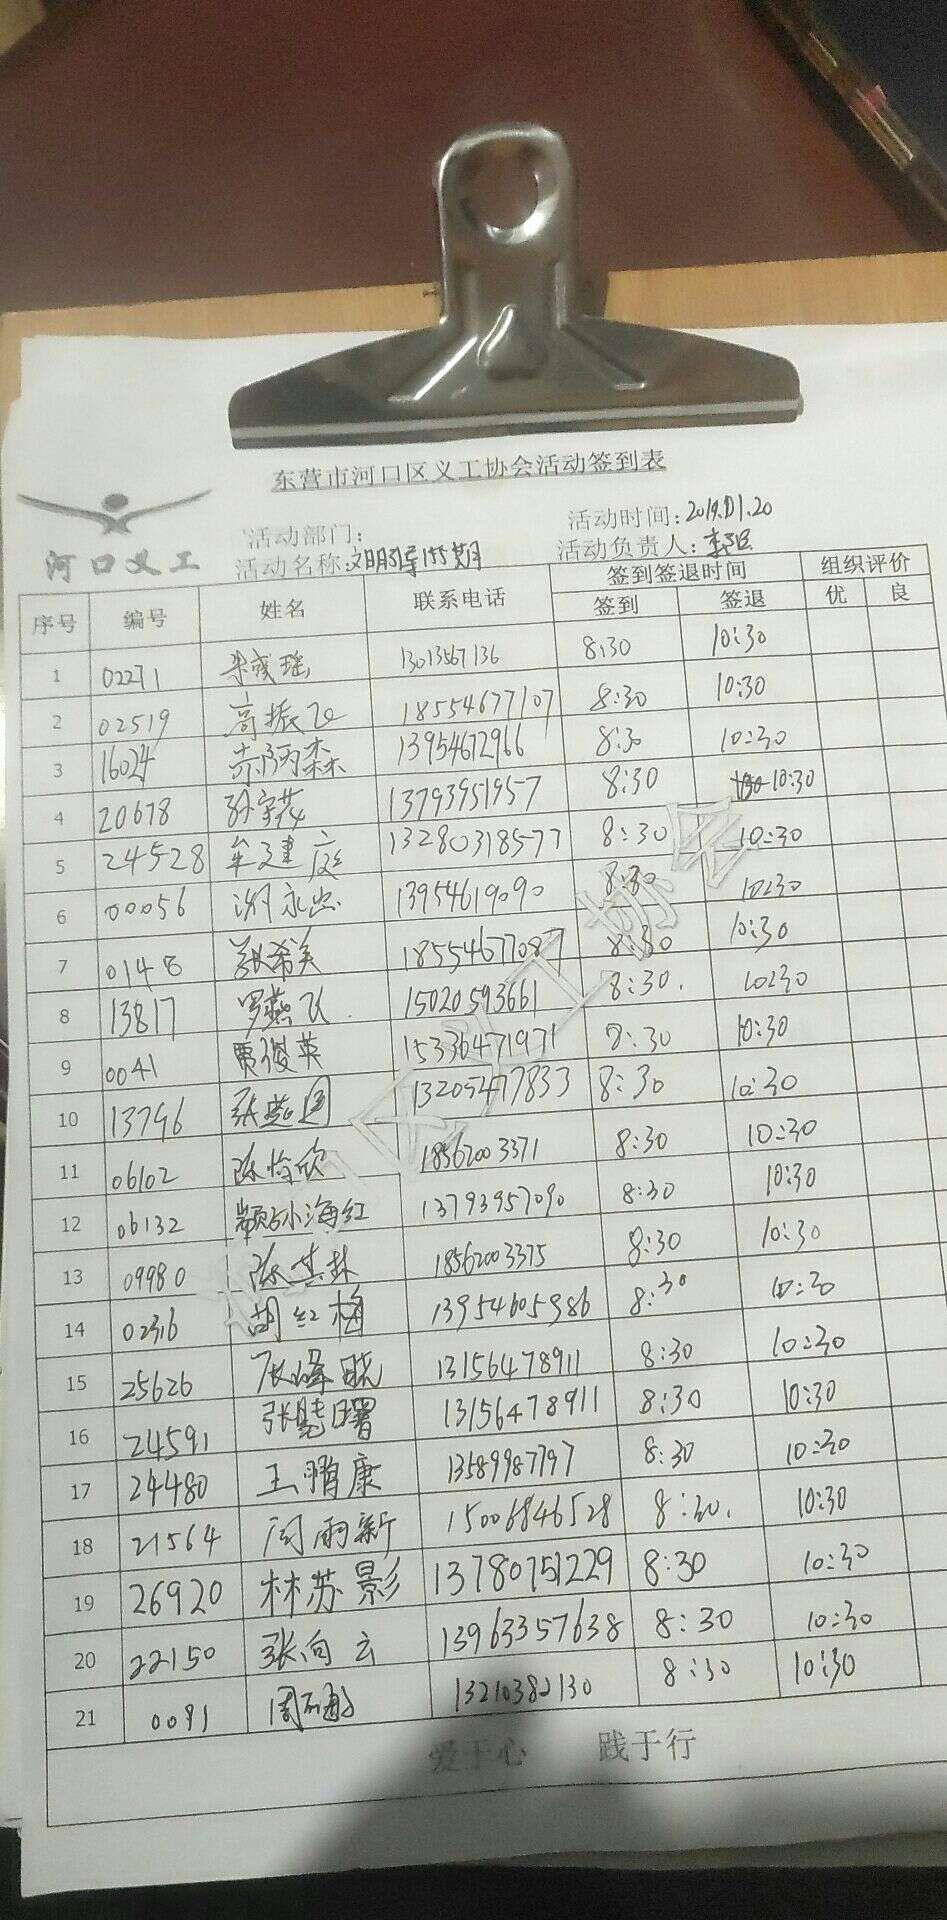 东营市河口区义工协会活动签到表
河口义工
活动部门: 活动时间: 2019.01.20
活动名称: 文明引导155期 活动负责人:
序号 编号 姓名 联系电话 签到签退时间 组织评价
签到 签退 优 良
1 02271 13013567136 8:30 10:30
2 02519 高振飞 18554677107 8:30 10:30
3 16024 13954672966 8:30 10:30
4 20678 13793951957 8:30 10:30
5 24528 牟建庭 13280318577 8:30 10:30
6 00056 谢永忠 13954619090 8:30 10:30
7 0148 张希美 18554677087 8:30 10:30
8 13817 罗燕飞 15020593661 8:30 10:30
9 0041 贾俊英 15336471971 8:30 10:30
10 13796 13205477833 8:30 10:30
11 06102 陈怡欣 18562003371 8:30 10:30
12 06132 孙海红 13793957090 8:30 10:30
13 09980 18562003375 8:30 10:30
14 02316 胡红梅 13954605986 8:30 10:30
15 25626 13156478911 8:30 10:30
16 24591 张曙 13156478911 8:30 10:30
17 24480 王鹏康 13589987797 8:30 10:30
18 21564 闫雨新 15006846528 8:30 10:30
19 26920 林苏影 13780751229 8:30 10:30
20 22150 张向云 13963357638 8:30 10:30
21 0091 13210382130 8:30 10:30
爱于心 践于行